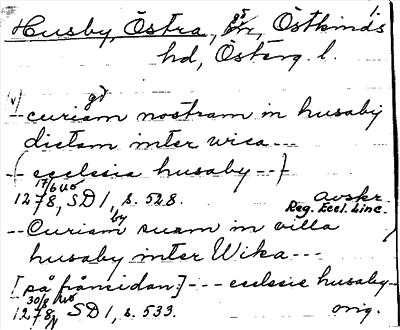 1.
Husby, Östra, Östkinds
hd, Österg. l.
gd
--curiam nostram in husaby
dictam inter wica---
(--ecclesia husaby--)
17/6 Uo
1278, SD 1, s. 528. avskr.
by Reg. Eccl. Linc.
--Curiam suam in villa
husaby inter Wika---
[på framsidan]---ecclesie husaby--
30/8 Uo
1278, SD 1, s. 533. orig.